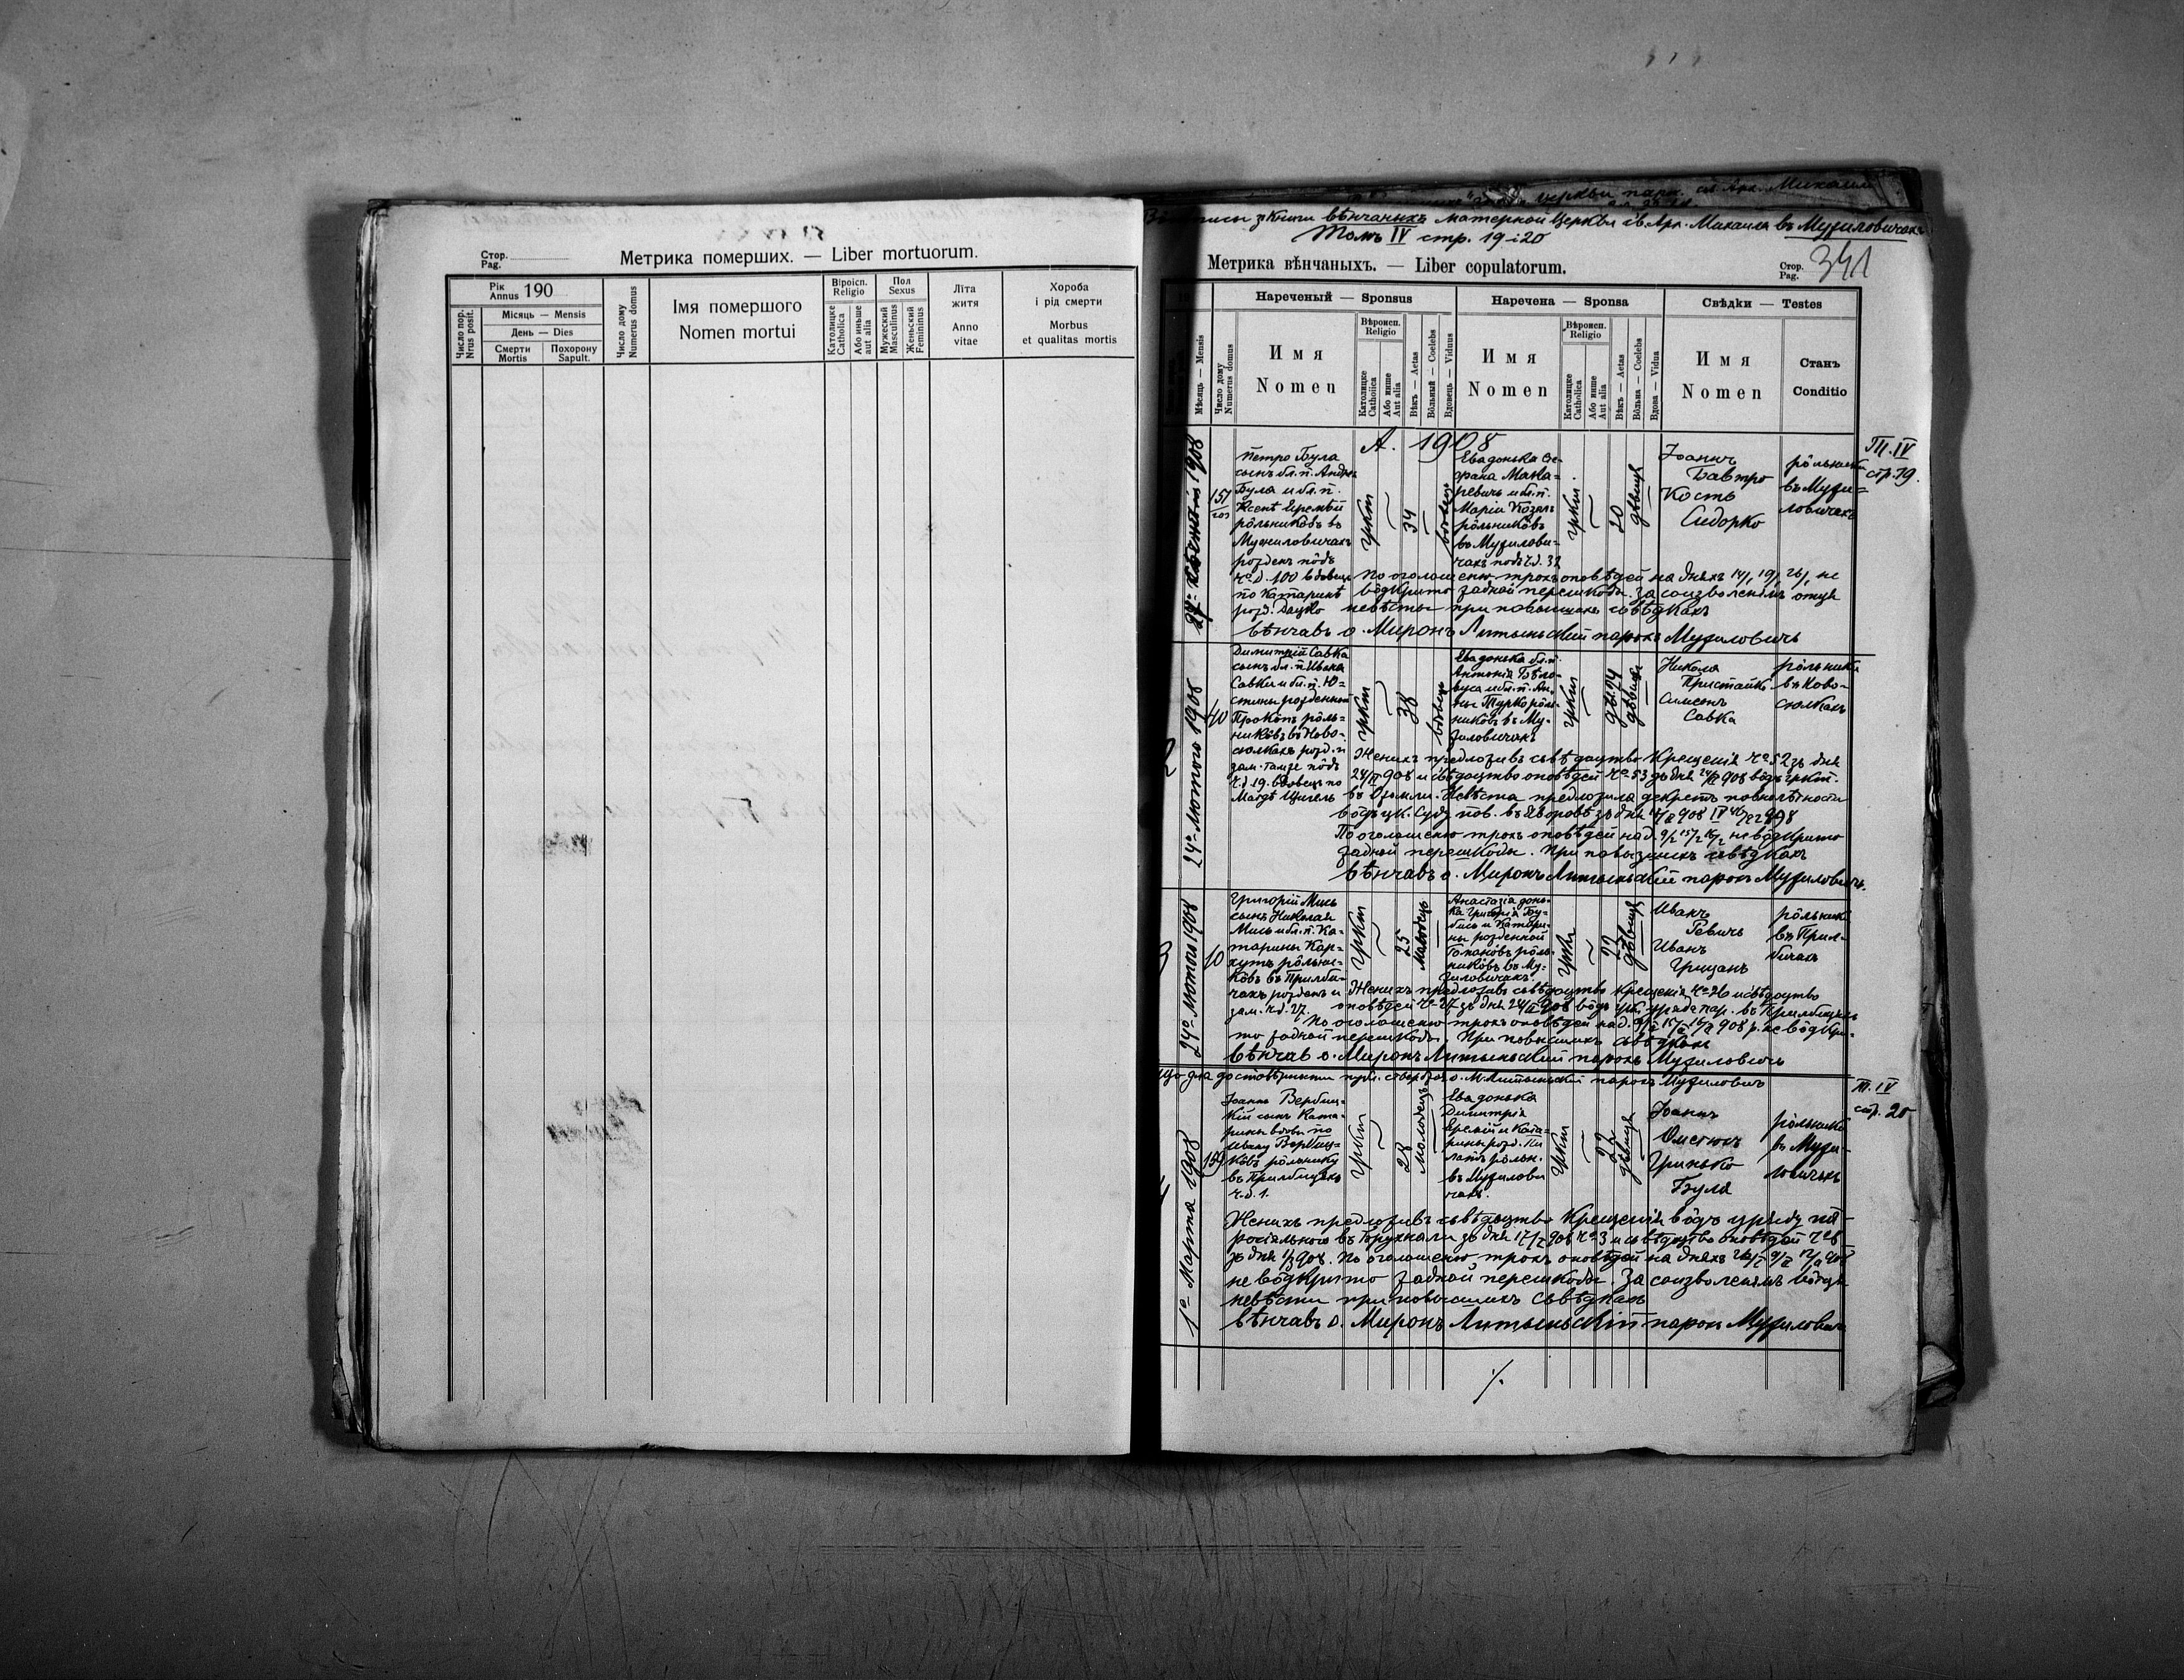 Стор.
Pag.
Метрика померших. — Liber mortuorum.
Рік
Annus 190
Число пор.
Nrus posit.
Місяць — Mensis
День — Dies
Смерти
Mortis
Похорону
Sapult.
Число дому
Numerus domus
Імя помершого
Nomen mortui
Віроісп.
Religio
Католицке
Catholica
Або иньше
aut alia
Пол
Sexus
Мужеский
Masculinus
Женьский
Femininus
Літа
житя
Anno
vitae
Хороба
і рід смерти
Morbus
et qualitas mortis
церкви пар. св. Арх. Михаила
зъ Книги вѣнчаныхъ матерной Церкви св. Арх. Михаила въ Мужиловичахъ
Томъ IV стр. 19 і 20
Метрика вѣнчаныхъ. — Liber copulatorum.
Стор.
Pag. 341
Мѣсяць — Mensis
Число дому
Numerus domus
Нареченый — Sponsus
Имя
Nomen
Вѣроисп.
Religio
Католицке
Catholica
Або инше
Aut alia
Вѣкъ — Aetas
Вôльный — Coelebs
Вдовець — Viduus
Наречена — Sponsa
Имя
Nomen
Вѣроисп.
Religio
Католицке
Catholica
Або инше
Aut alia
Вѣкъ — Aetas
Вôльна — Coelebs
Вдова — Vidua
Свѣдки — Testes
Имя
Nomen
Станъ
Conditio
А. 1908
Т. IV
стр. 19.
1908
157
Петро Була
сынъ бл. п. Андрея
Була и бл. п.
рôльникôвъ въ
Мужиловичахъ
рожденъ пôдъ
ч. д. 100 вдовець
по Катаринѣ
рожд. Дацко
гркт
34
вдовець
Ева донька
Мака-
ревичъ и бл. п.
Маріи Козелъ
рôльникôвъ
въ Мужилови-
чахъ пôдъ ч. д. 32
гркт
20
дѣвиця
Іоаннъ
Бавтро
Кость
Сидорко
рôльники
въ Мужи-
ловичахъ
По оголошеню трохъ оповѣдей на дняхъ 12/1, 19/1, 26/1, не
вôдкрито жадной перешкоды. За соизволеніемъ отця
невѣсты при повысшихъ свѣдкахъ
вѣнчавъ о. Миронъ Литыньскій парохъ Мужиловичъ
24го Лютого 1908
40
Димитрій Савка
сынъ бл. п. Ивана
Савки и бл. п. Ю-
стины рожденной
Прокопъ рôль-
никôвъ въ Ново-
сюлкахъ рожд. и
зам. тамже пôдъ
ч. д. 19. вдовець по
Магдѣ
гркт
38
вдовець
Ева донька бл. п.
Антонія Бѣло-
вуса и бл. п. Ан-
ны Турко рôль-
никôвъ въ Му-
жиловичахъ
гркт
24
дѣвиця
Никола
Пристайко
Симеонъ
Савка
рôльники
въ Ново-
сюлкахъ
Женихъ предложивъ свѣдоцтво Крещенія Чо 52 зъ дня
24/II 908 и свѣдоцтво оповѣдей Чо 53 зъ дня 24/II 908 вôдъ гркт.
Невѣста предложила декретъ повнолѣтности
вôдъ цк. Суду пов. въ Яворовѣ зъ дня
По оголошеню трохъ оповѣдей на д. 9/2 15/2 16/2 не вôдкрито
жадной перешкоды. При повысшихъ свѣдкахъ
вѣнчавъ о. Миронъ Литыньскій парохъ Мужиловичъ.
24го Лютого 1908
10
Григорій Мись
сынъ Николая
Мись и бл. п. Ка-
тарины Кар-
хутъ рôльни-
кôвъ въ Прилби-
чахъ рожденъ и
зам. ч. д. 27.
гркт
25
молодець
Анастазія донь-
ка Григорія Бу-
бись и Катари-
ны рожденной
рôль-
никôвъ въ Му-
жиловичахъ
гркт
22
дѣвиця
Иванъ
Ревичъ
Иванъ
Грицанъ
рôльники
въ Прил-
бичахъ
Женихъ предложивъ свѣдоцтво Крещенія Чо 26 и свѣдоцтво
оповѣдей Чо 27 зъ дня 24/II 908 вôдъ гркт. уряда пар. въ Прилбицяхъ
По оголошеню трохъ оповѣдей на д. 9/2 15/2 16/2 908 р. не вôдкри-
то жадной перешкоды. При повысшихъ свѣдкахъ
вѣнчавъ о. Миронъ Литыньскій парохъ Мужиловичъ
о. М. Литыньскій парохъ Мужиловичъ
Т. IV
стр. 20
1го Марта 1908
159
Іоаннъ Вербиц-
кій сынъ Ката-
рины вдови по
Ивану Вербиц-
кôмъ рôльнику
въ Прилбицяхъ
ч. д. 1.
гркт
28
молодець
Ева донька
Димитрія
и Ката-
рины рожд.
рôльн.
въ Мужилови
чахъ.
гркт
22
дѣвиця
Іоаннъ
Омелюхъ
Гринько
Була
рôльники
въ Мужи-
ловичахъ
Женихъ предложивъ свѣдоцтво Крещенія вôдъ уряду па-
рохіяльного въ Брухнали зъ дня 17/2 908 Чо 3 и свѣдоцтво оповѣдей Чо 8
зъ дня 1/3 908. По оголошеню трохъ оповѣдей на дняхъ
не вôдкрито жадной перешкоды. За соизволеніемъ вôтця
невѣсти при повысшихъ свѣдкахъ
вѣнчавъ о. Миронъ Литыньскій парохъ Мужиловичъ